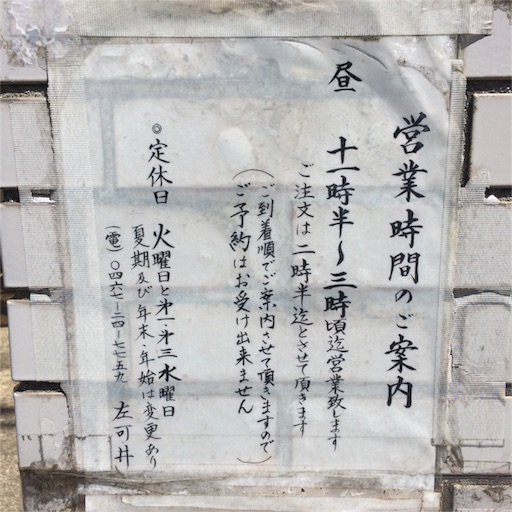 営業時間のご案内
昼 十一時半〜三時頃迄営業致します
ご注文は二時半迄とさせて頂きます
(ご到着順でご案内させて頂きますので
ご予約はお受け出来ません)
◎定休日 火曜日と第一・第三水曜日
夏期及び年末・年始は変更あり
(電)〇四六七-二四-七七五九 左可井